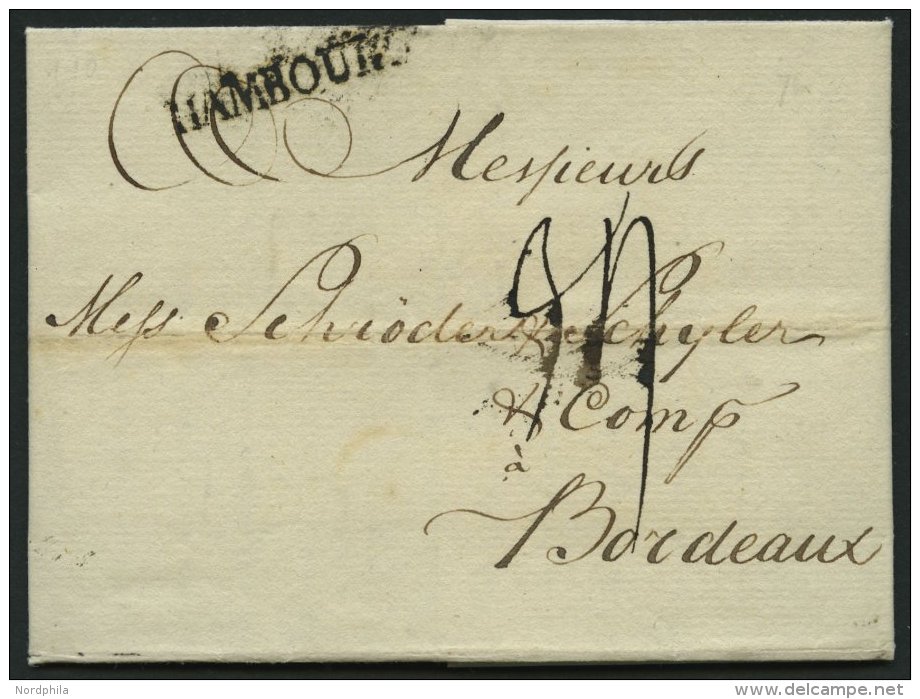 HAMBOURG
Messieurs
Mess Schröder & Schyler
& Comp
à
Bordeaux
Nordphila
www.delcampe.net